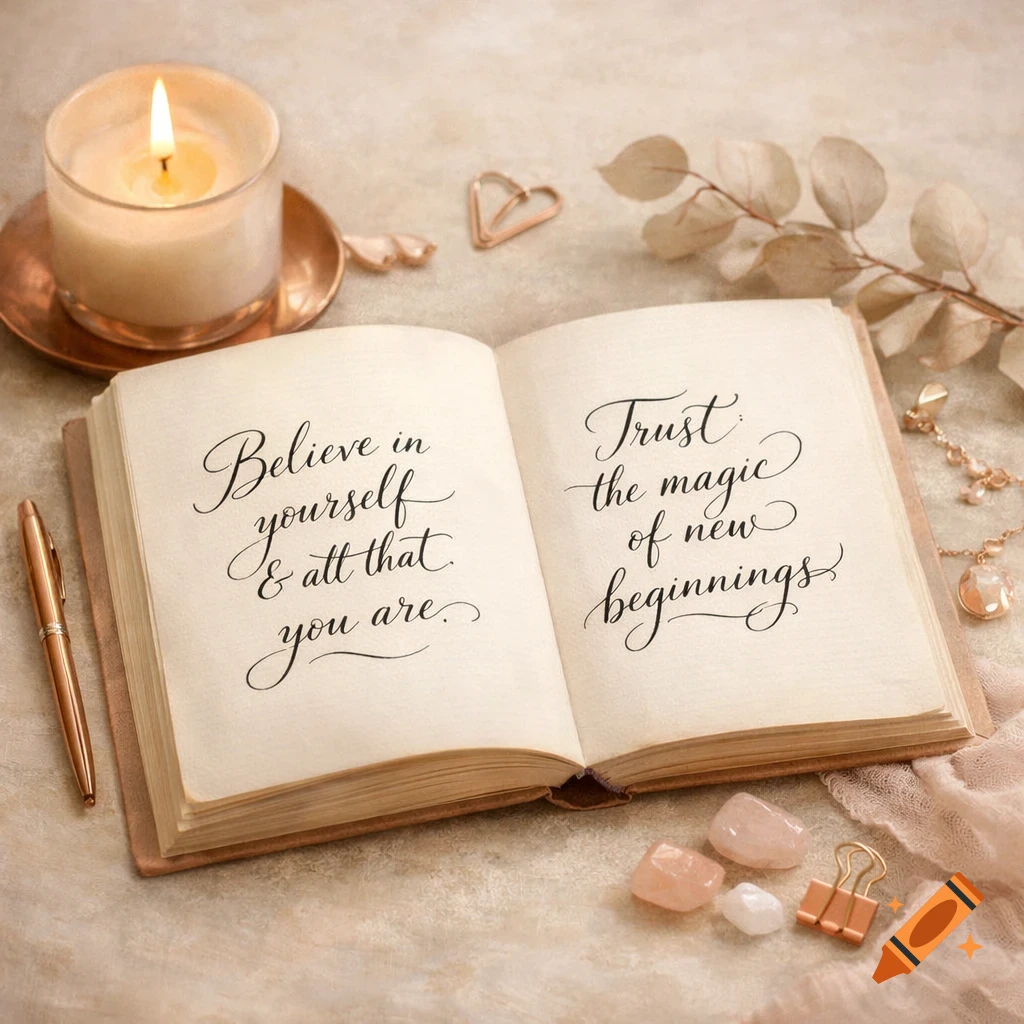 Believe in
yourself
& all that
you are.
Trust
the magic
of new
beginnings